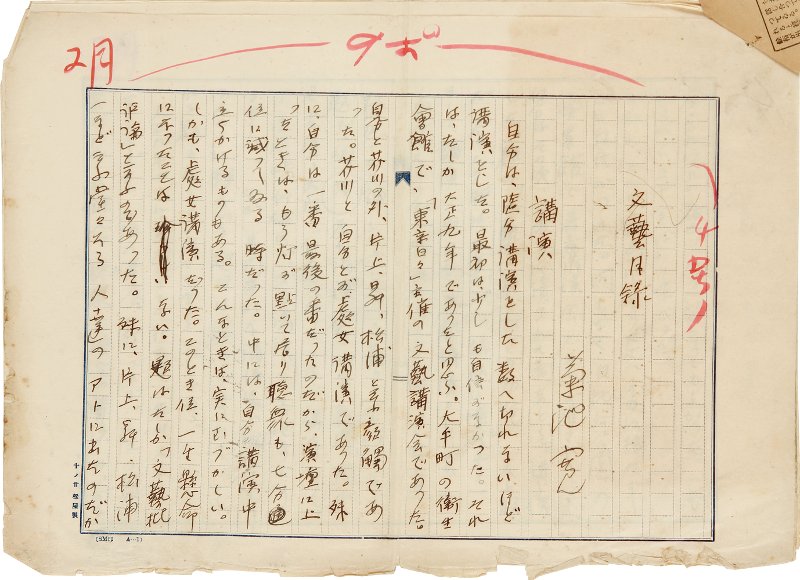 2月
9ポ
(4号)
文藝目錄
菊池寛
講演
自分は、隨分講演をした数へ切れないほど
講演をした。最初は少しも自信がなかつた。それ
は、たしか大正九年であつたと思ふ。大手町の衛生
會館で、「東京日々」主催の文藝講演会であつた。
自分と芥川の外、片上、昇、松浦と云ふ顔觸であ
つた。芥川と自分とが處女講演であつた。殊
に、自分は一番最後の番だつたのだから、演壇に上
つたときは、もう灯が點いて居り聴衆も、七分
位に減つてゐる時だつた。中には、自分の講演中
立ちかけるものもある。こんなときは、実にむづかしい。
しかも、處女講演だつた。このとき位、一生懸命
になつたことはない。題はたしか「文藝批
評論」と云ふのであつた。殊に、片上、昇、松浦
と云ふ堂々たる人達のアトに出たのだか